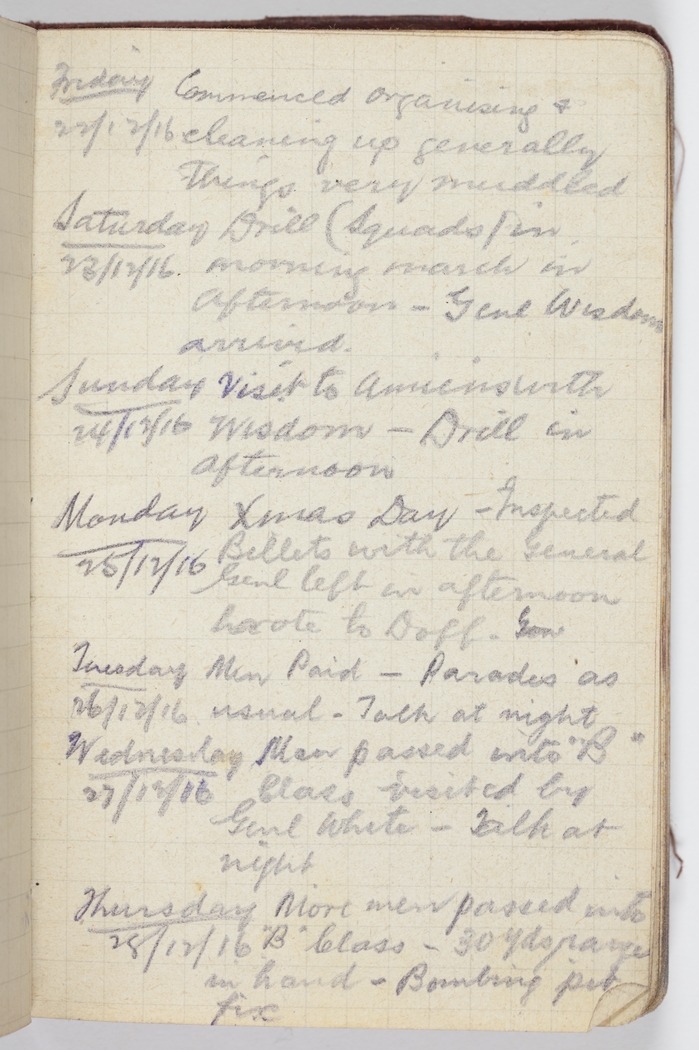 Friday Commenced organising &
22/12/16 cleaning up generally
Things very muddled
Saturday Drill (Squads) in
23/12/16. morning march in
afternoon - Genl Wisdom
arrived.
Sunday Visit to Amiens with
24/12/16 Wisdom - Drill in
afternoon
Monday Xmas Day - Inspected
25/12/16 Billets with the General
Genl left in afternoon
wrote to Doff.
Tuesday Men Paid - Parades as
26/12/16 usual - Talk at night
Wednesday Men passed into "B"
27/12/16 Class visited by
Genl White - Talk at
night
Thursday More men passed into
28/12/16 "B" Class - 30 yds range
in hand - Bombing pit
fix